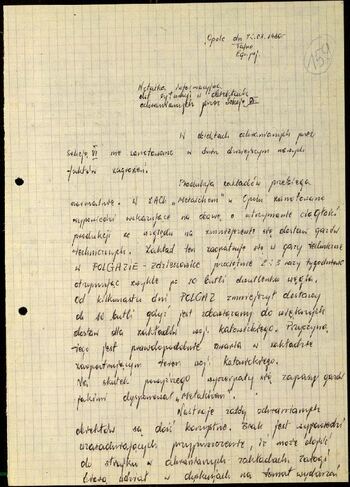 Opole dn 15.09.1980
Tajne
Egz. poj.
159
Notatka informacyjna
dot. sytuacji w obiektach
ochranianych przez Sekcję VI
W obiektach ochranianych przez
Sekcję VI nie zanotowano w dniu dzisiejszym nowych
faktów zagrożeń.
Produkcja zakładów przebiega
normalnie. W ZACh "Metalchem" w Opolu zanotowano
wypowiedzi wskazujące na obawę o utrzymanie ciągłości
produkcji ze względu na zmniejszenie się dostaw gazów
technicznych. Zakład ten zaopatruje się w gazy techniczne
w POLGAZIE - Zdzieszowice przeciętnie 2 i 3 razy tygodniowo
otrzymując zwykle po 50 butli dwutlenku węgla.
Od kilkunastu dni POLGAZ zmniejszył dostawy
do 10 butli gdyż jest zobowiązany do większych
dostaw dla zakładów woj. katowickiego. Przyczyna
tego jest prawdopodobnie awaria w zakładzie
zaopatrującym teren woj. katowickiego.
Na skutek powyższego wyczerpały się zapasy gazów
jakimi dysponował "Metalchem".
Nastroje załóg ochranianych
obiektów są dość korzystne. Brak jest wypowiedzi
uzasadniających przypuszczenie, iż może dojść
do strajku w ochranianych zakładach. Załogi
biorą udział w dyskusjach na temat wydarzeń